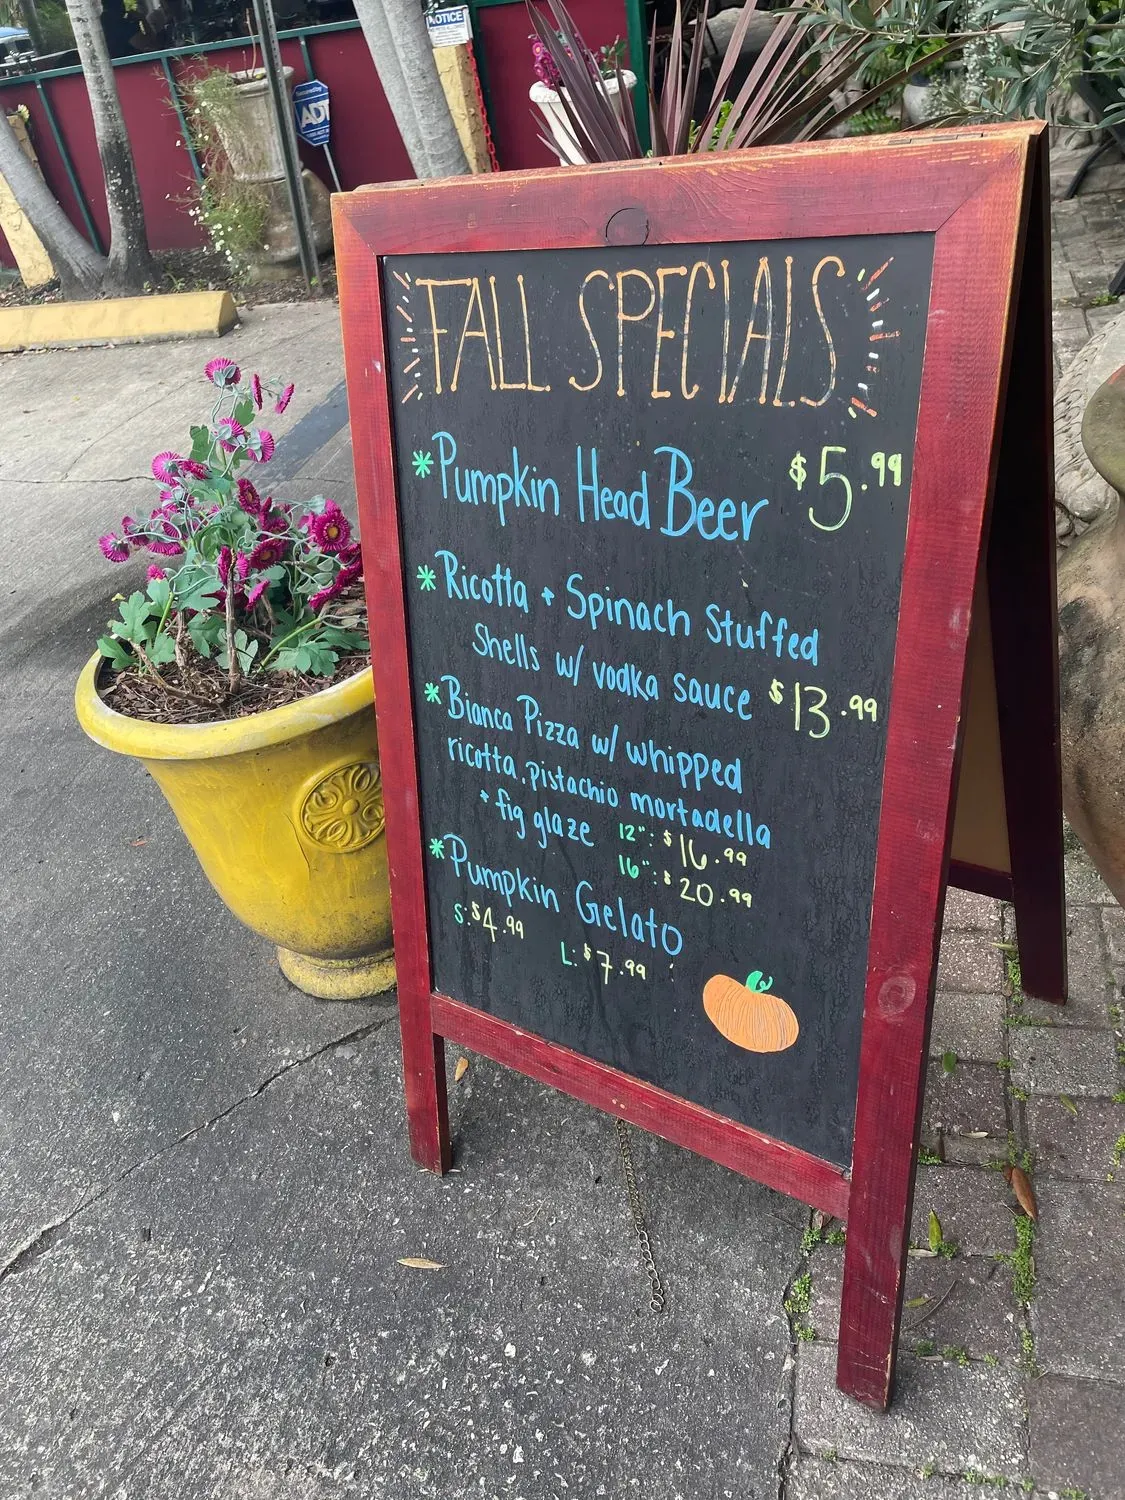 NOTICE
Secured by
ADT
FALL SPECIALS
* Pumpkin Head Beer $5.99
* Ricotta + Spinach Stuffed
Shells w/ vodka sauce $13.99
* Bianca Pizza w/ whipped
ricotta, pistachio mortadella
+ fig glaze 12": $16.99
16": $20.99
* Pumpkin Gelato
S: $4.99 L: $7.99